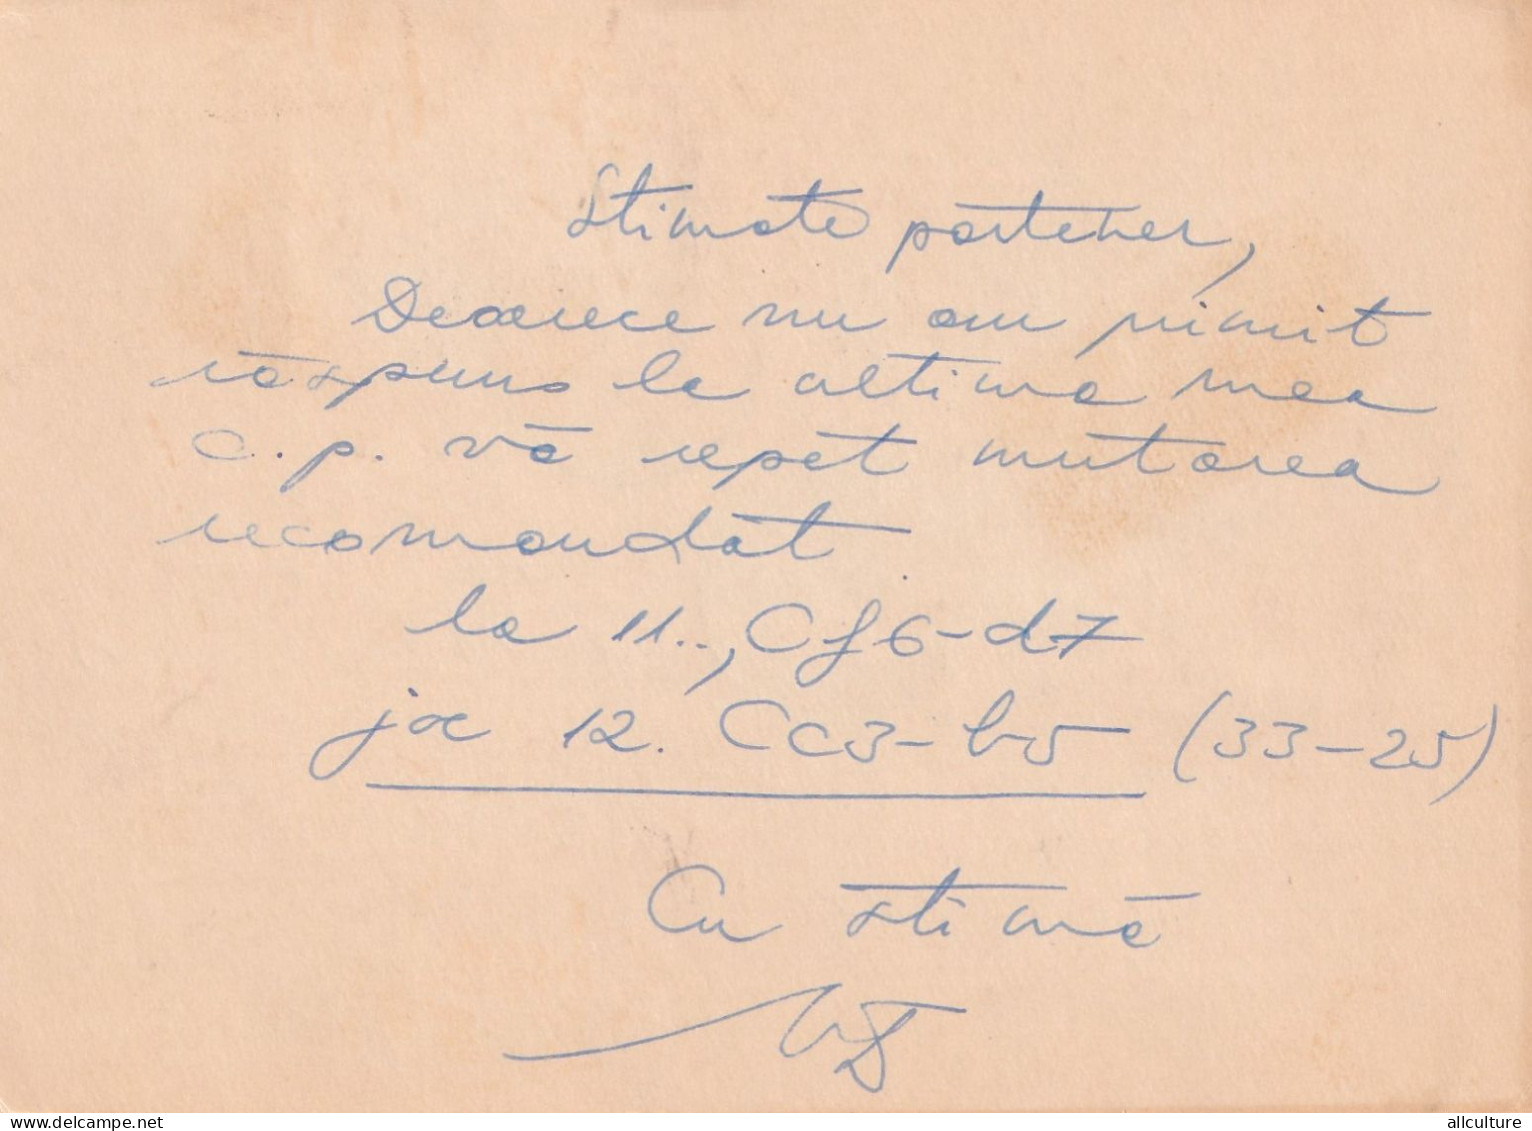 Stimate partener,
Deoarece nu am primit
răspuns la ultima mea
c.p. vă repet mutarea
recomandat
la 11.., Cf6-d7
joc 12. Cc3-b5 (33-25)
Cu stimă
delcampe.net
allculture